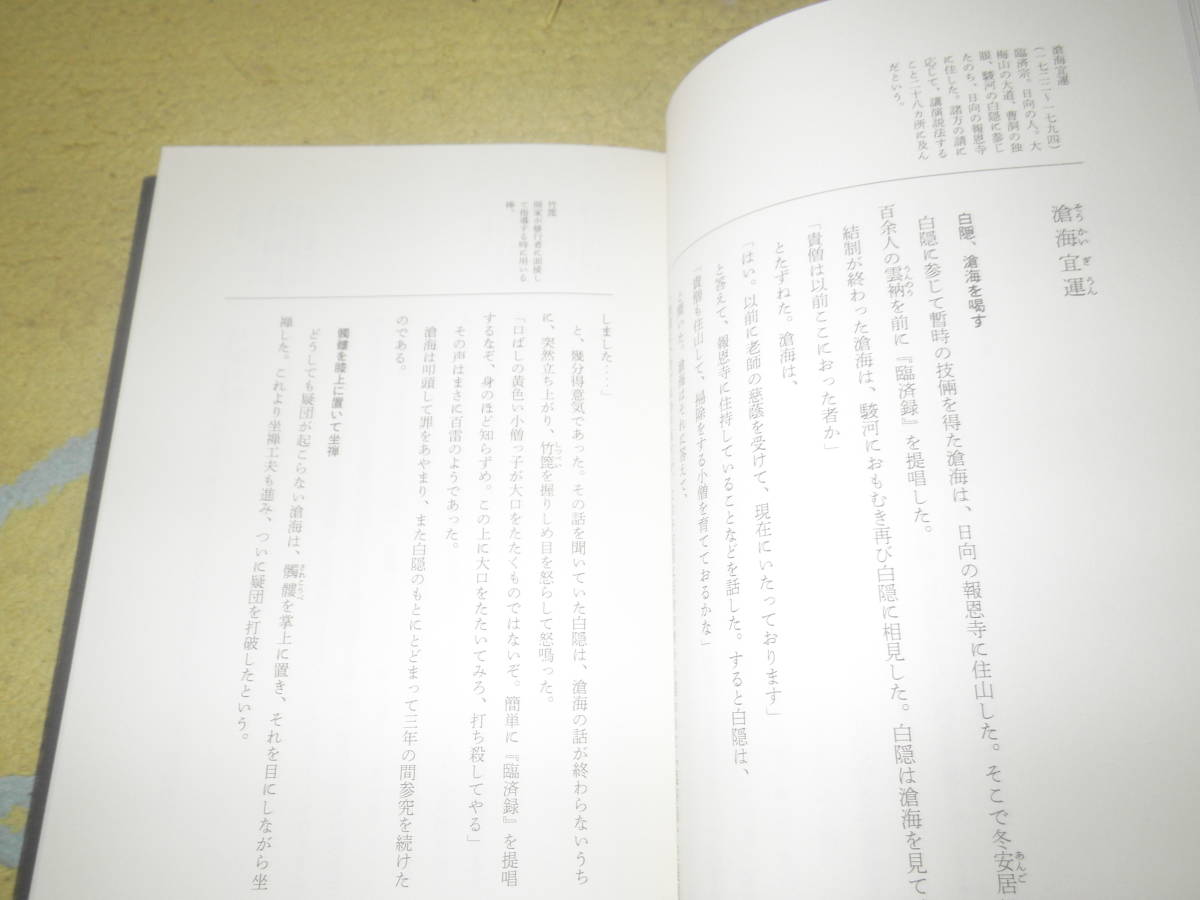 滄海宜運
(一七二二〜一七九四)
臨済宗。日向の人。大
梅山の大道、曹洞の独
眼、駿河の白隠に参じ
たのち、日向の報恩寺
に住した。諸方の請に
応じて、講演説法する
こと二十八カ所に及ん
だという。
滄海宜運
そうかいぎうん
白隠、滄海を喝す
白隠に参じて暫時の技倆を得た滄海は、日向の報恩寺に住山した。そこで冬安居
あんご
百余人の雲衲を前に『臨済録』を提唱した。
うんのう
結制が終わった滄海は、駿河におもむき再び白隠に相見した。白隠は滄海を見て
「貴僧は以前ここにおった者か」
とたずねた。滄海は、
「はい。以前に老師の慈蔭を受けて、現在にいたっております」
と答えて、報恩寺に住持していることなどを話した。すると白隠は、
「貴僧も住山して、掃除をする小僧を育てておるかな」
と聞いた。滄海はそれに答えて、
竹箆
師家が修行者に面接し
て指導する時に用いる
棒。
しました……」
と、幾分得意気であった。その話を聞いていた白隠は、滄海の話が終わらないうち
に、突然立ち上がり、竹箆を握りしめ目を怒らして怒鳴った。
しっぺい
「口ばしの黄色い小僧っ子が大口をたたくものではないぞ。簡単に『臨済録』を提唱
するなぞ、身のほど知らずめ。この上に大口をたたいてみろ、打ち殺してやる」
その声はまさに百雷のようであった。
滄海は叩頭して罪をあやまり、また白隠のもとにとどまって三年の間参究を続けた
のである。
髑髏を膝上に置いて坐禅
どうしても疑団が起こらない滄海は、髑髏を掌上に置き、それを目にしながら坐
されこうべ
禅した。これより坐禅工夫も進み、ついに疑団を打破したという。